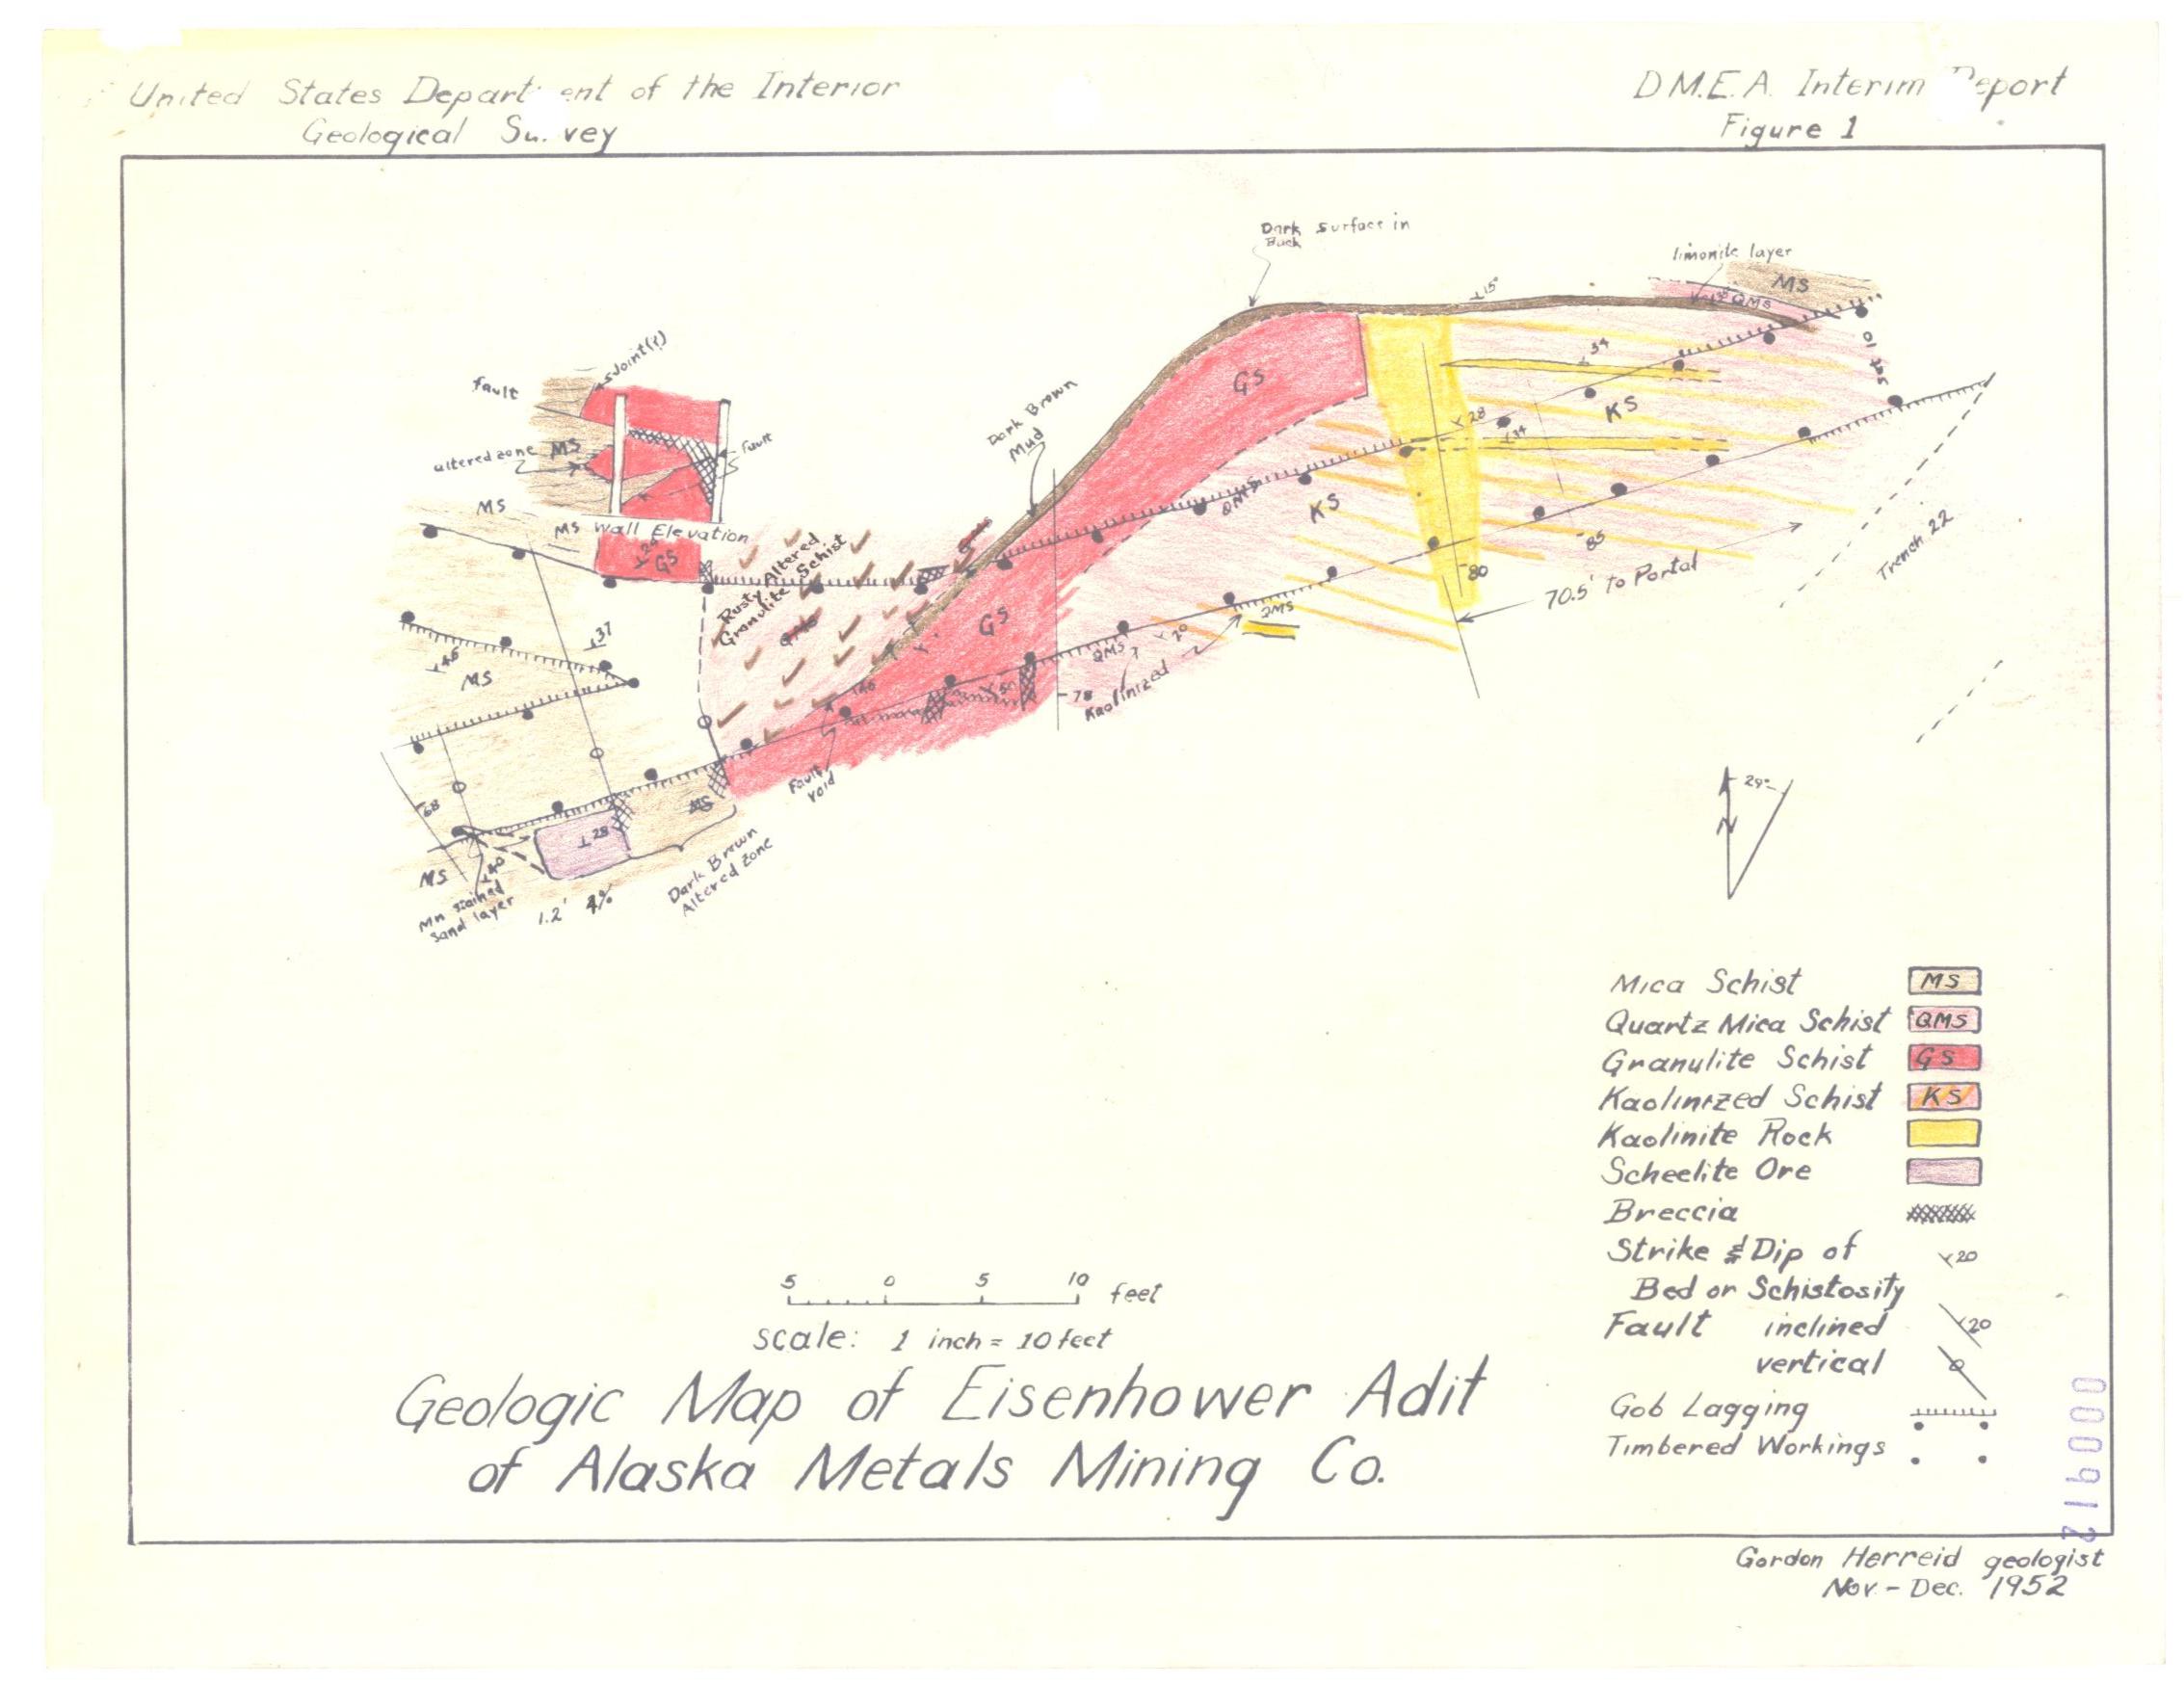 United States Depart ent of the Interior
Geological Su vey
D.M.E.A. Interim Report
Figure 1
Dark Surface in
Back
limonite layer
MS
15°
QMS
Set 10
34
KS
GS
28
34
Joint(?)
Fault
altered zone
MS
Fault
MS
MS
Wall Elevation
GS
Dark Brown
Mud
Rusty Altered
Granulite Schist
QMS
KS
85
80
70.5' to Portal
Trench 22
37
46
MS
GS
QMS
QMS ?
20
78
Kaolinized
50
Fault
void
68
MS
28
MS
40
Mn stained
sand layer
1.2' 4%
Dark Brown
Altered Zone
N
29°
Mica Schist MS
Quartz Mica Schist QMS
Granulite Schist GS
Kaolinized Schist KS
Kaolinite Rock
Scheelite Ore
Breccia
Strike & Dip of 20
Bed or Schistosity
Fault inclined 20
vertical
Gob Lagging
Timbered Workings
5 0 5 10 feet
scale: 1 inch = 10 feet
Geologic Map of Eisenhower Adit
of Alaska Metals Mining Co.
000912
Gordon Herreid geologist
Nov.-Dec. 1952